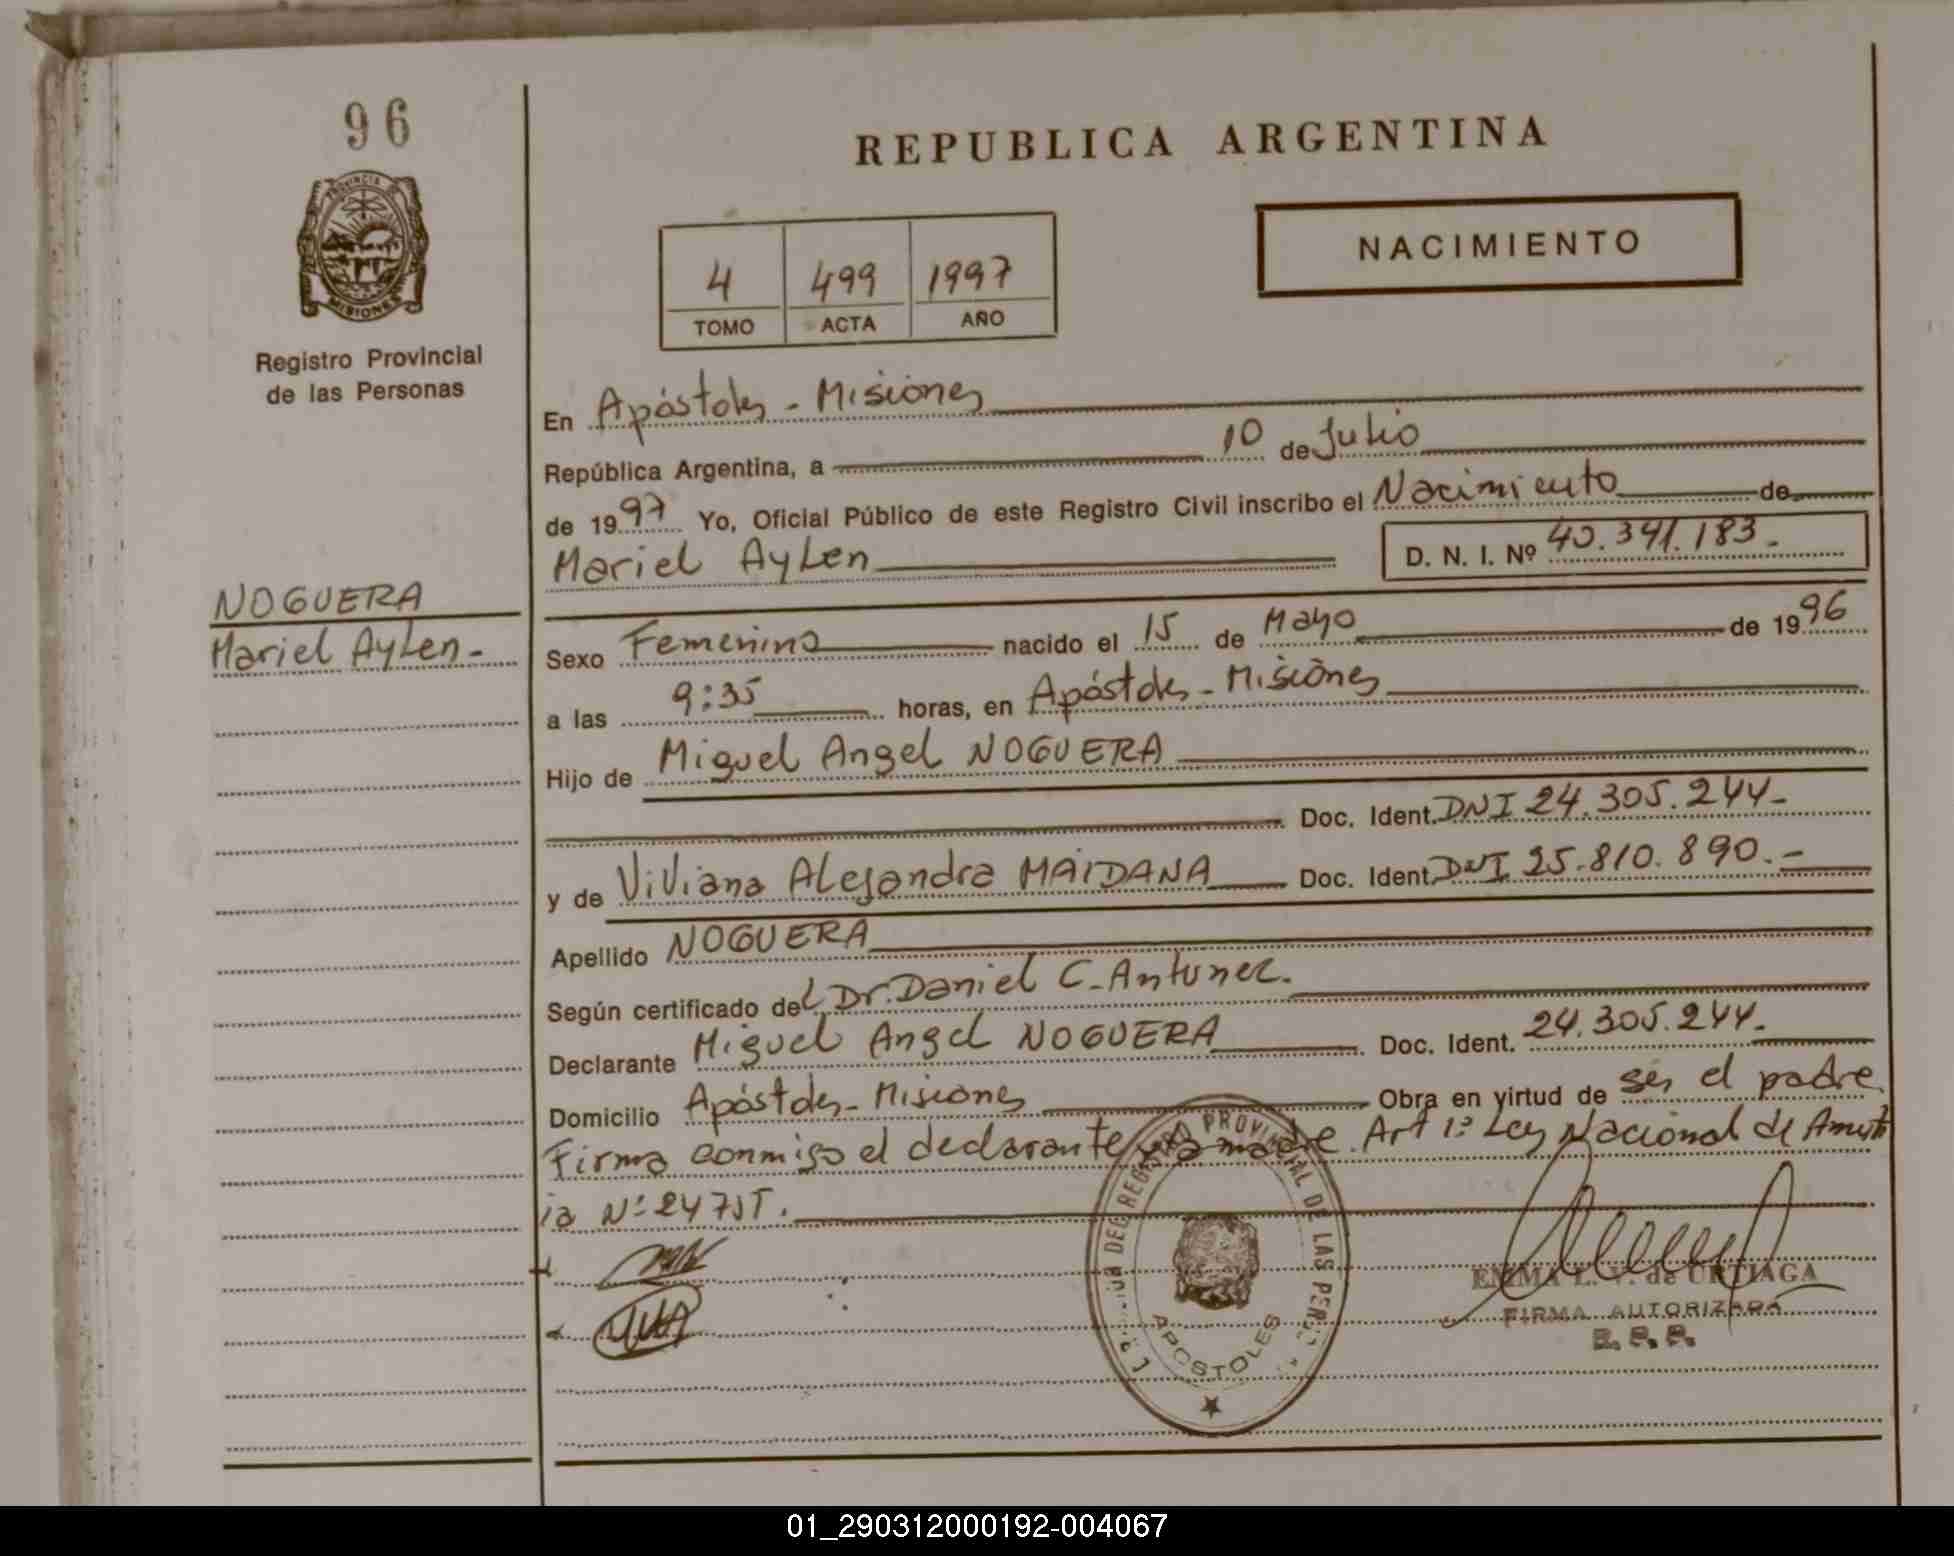 96
REPUBLICA ARGENTINA
PROVINCIA DE
MISIONES
NACIMIENTO
4 499 1997
TOMO ACTA AÑO
Registro Provincial
de las Personas
En Apóstoles - Misiones
República Argentina, a 10 de Julio
de 1997 Yo, Oficial Público de este Registro Civil inscribo el Nacimiento de
Mariel Aylen D. N. I. Nº 40.341.183.-
NOGUERA
Mariel Aylen.-
Sexo Femenino nacido el 15 de Mayo de 1996
a las 9:35 horas, en Apóstoles - Misiones
Hijo de Miguel Angel NOGUERA
Doc. Ident. DNI 24.305.244.-
y de Viviana Alejandra MAIDANA Doc. Ident. DNI 25.810.890.-
Apellido NOGUERA
Según certificado del Dr. Daniel C. Antunez.
Declarante Miguel Angel NOGUERA Doc. Ident. 24.305.244.
Domicilio Apóstoles - Misiones Obra en virtud de ser el padre.
Firma conmigo el declarante y la madre. Art 1º Ley Nacional de Amnist
ia Nº
REGISTRO PROVINCIAL DE LAS PERSONAS
APOSTOLES
EMMA L. V. de URTIAGA
FIRMA AUTORIZADA
01_290312000192-004067